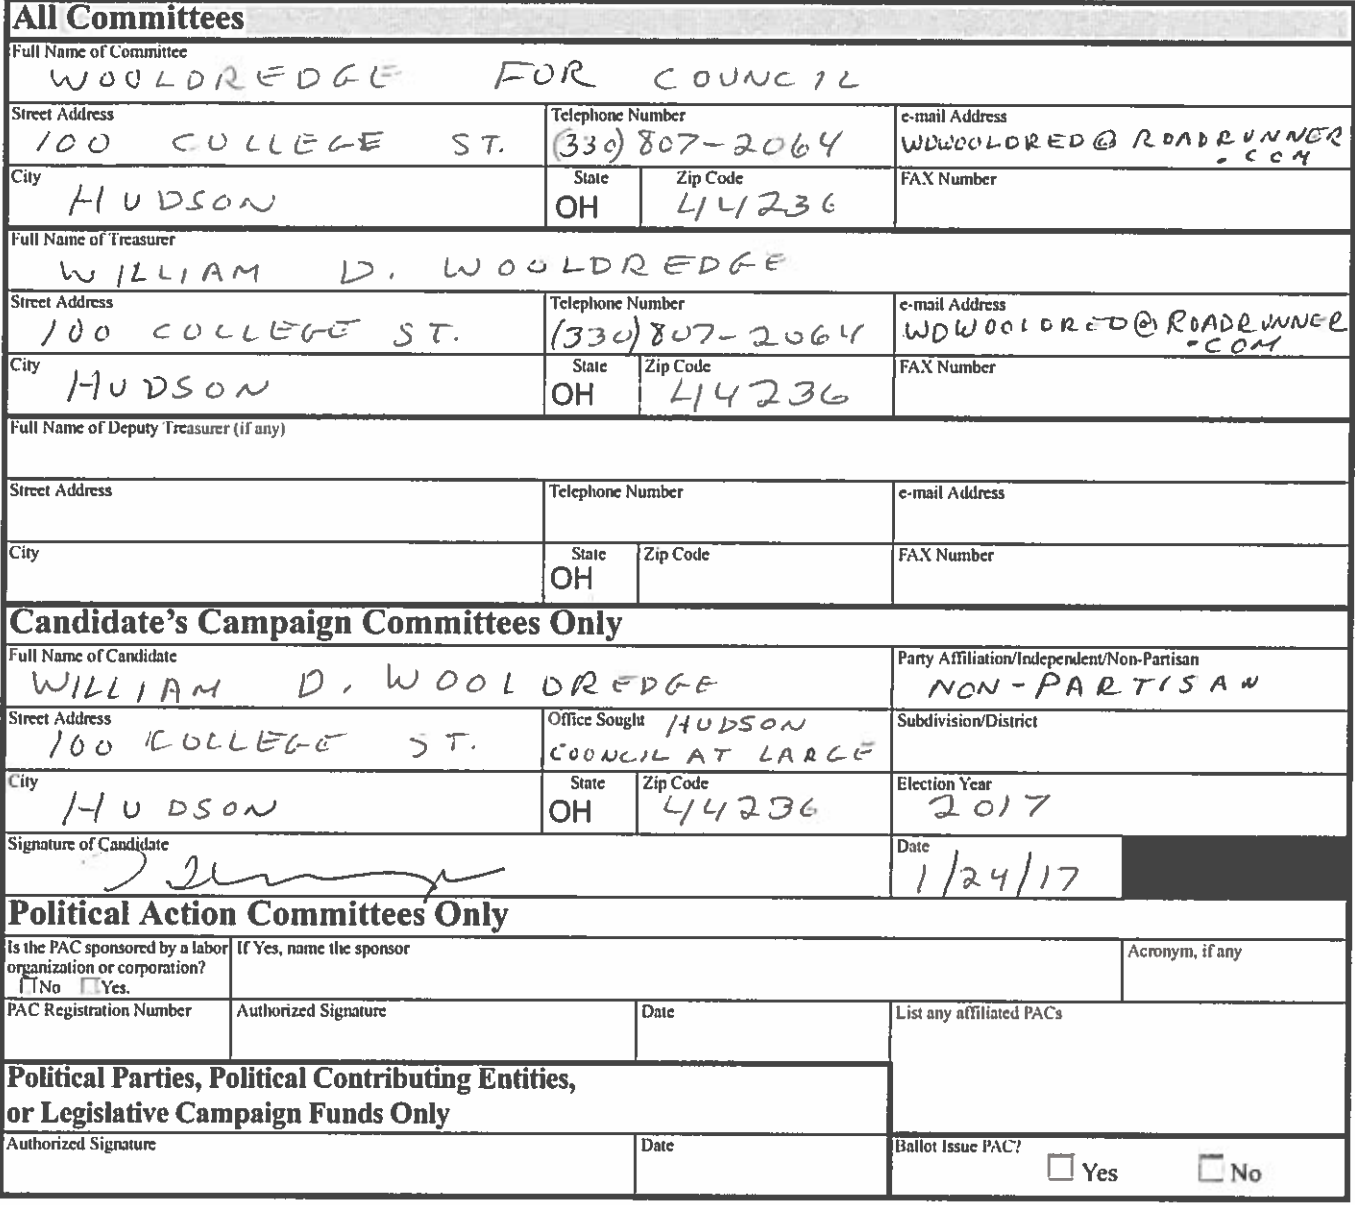 All Committees
Full Name of Committee
WOOLDREDGE FOR COUNCIL
Street Address
100 COLLEGE ST.
Telephone Number
(330) 807-2064
e-mail Address
WDWOOLDRED@ROADRUNNER
.COM
City
HUDSON
State
OH
Zip Code
44236
FAX Number
Full Name of Treasurer
WILLIAM D. WOOLDREDGE
Street Address
100 COLLEGE ST.
Telephone Number
(330) 807-2064
e-mail Address
WDWOOLDRED@ROADRUNNER
.COM
City
HUDSON
State
OH
Zip Code
44236
FAX Number
Full Name of Deputy Treasurer (if any)
Street Address
Telephone Number
e-mail Address
City
State
OH
Zip Code
FAX Number
Candidate's Campaign Committees Only
Full Name of Candidate
WILLIAM D. WOOLDREDGE
Party Affiliation/Independent/Non-Partisan
NON-PARTISAN
Street Address
100 COLLEGE ST.
Office Sought HUDSON
COUNCIL AT LARGE
Subdivision/District
City
HUDSON
State
OH
Zip Code
44236
Election Year
2017
Signature of Candidate
Date
1/24/17
Political Action Committees Only
Is the PAC sponsored by a labor
organization or corporation?
No Yes.
If Yes, name the sponsor
Acronym, if any
PAC Registration Number
Authorized Signature
Date
List any affiliated PACs
Political Parties, Political Contributing Entities,
or Legislative Campaign Funds Only
Authorized Signature
Date
Ballot Issue PAC?
Yes No